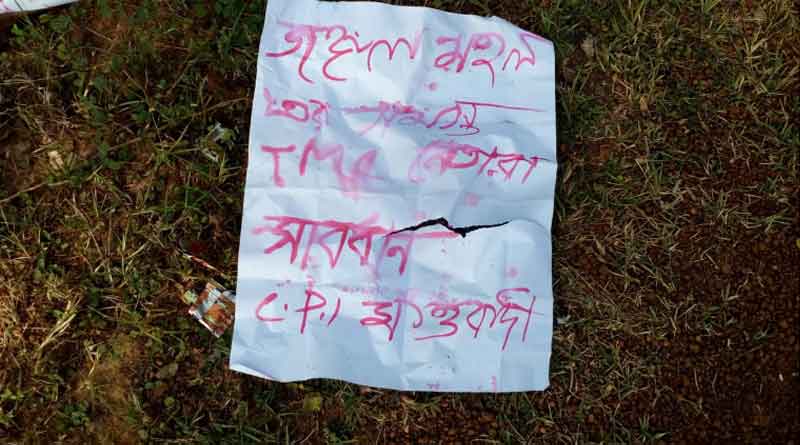 জঙ্গল মহল
এর সমস্ত
TMC নেতারা
সাবধান
C.P.I মাওবাদী